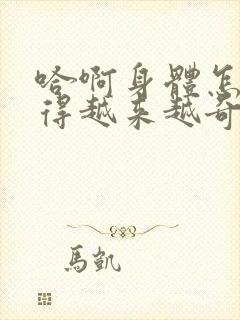 哈啊身體怎
得越来越奇
馬凱